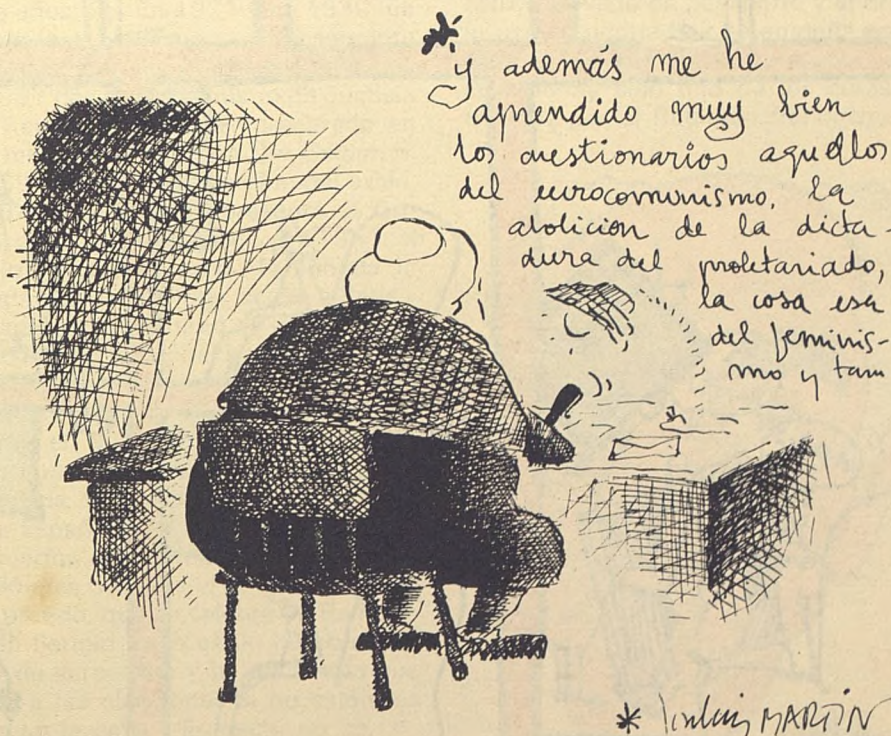 y además me he
aprendido muy bien
los cuestionarios aquellos
del eurocomunismo, la
abolicion de la dicta-
dura del proletariado,
la cosa esa
del feminis-
mo y tam
* MARTIN